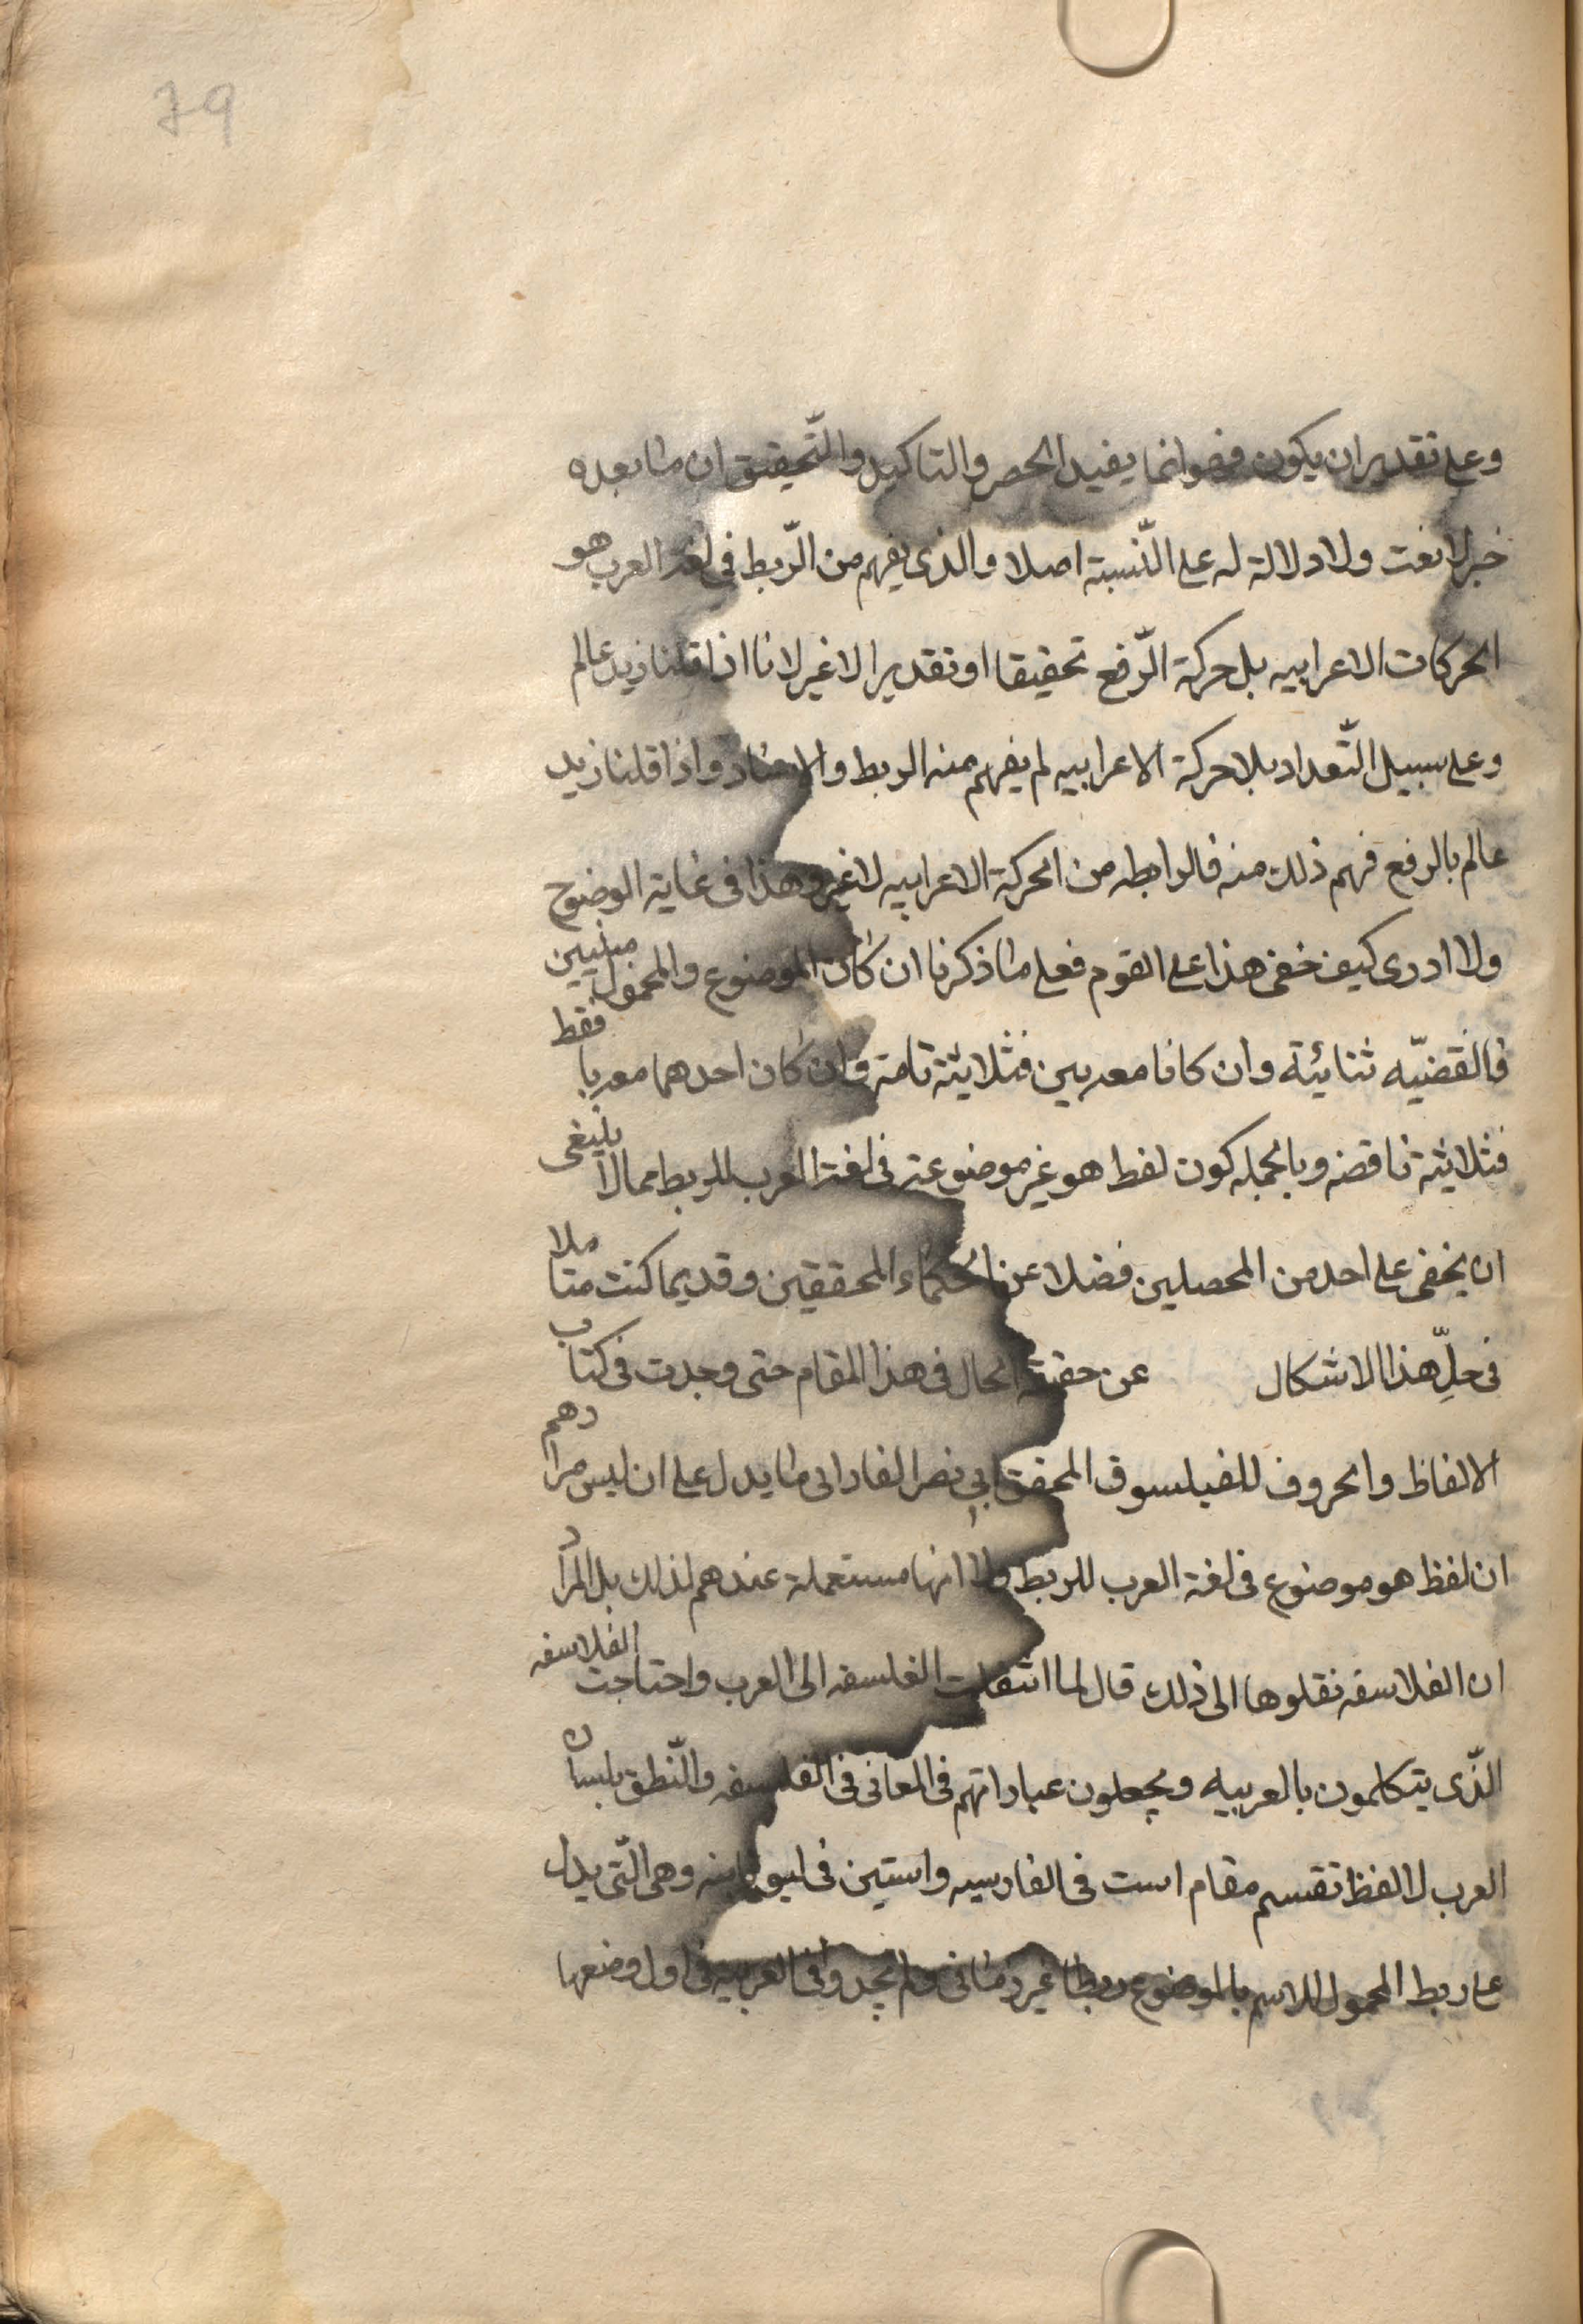 79
وعلى تقدير ان يكون فهو انما يفيد الحصر والتاكيد والتّحقيق ان ما بعده
خبر لا نعت ولا دلالة له على النّسبة اصلا والذى يفهم من الرّبط فى لغة العرب هو
الحركات الاعرابيه بل حركة الرّفع تحقيقا او تقديرا لا غير لانا اذا قلنا زيد عالم
وعلى سبيل التّعداد بلا حركة الاعرابيه لم يفهم منه الربط والاسناد واذا قلنا زيد
عالم بالرفع فهم ذلك منه فالرابطه من الحركة الاعرابيه لا غير وهذا فى غاية الوضوح
ولا ادرى كيف خفى هذا على القوم فعلى ما ذكرنا ان كان الموضوع والمحمول مبنيين
فالقضيّه ثنائية وان كانا معربين فثلاثية تامة وان كان احدهما معربا فقط
فثلاثية ناقصه وبالجمله كون لفظ هو غير موضوعة فى لغة العرب للربط مما لا ينبغى
ان يخفى على احد من المحصلين فضلا عن الحكماء المحققين وقديما كنت متاملا
فى حلّ هذا الاشكال عن حقيقة الحال فى هذا المقام حتى وجدت فى كتاب
الالفاظ والحروف للفيلسوف المحقق ابى نصر الفارابى ما يدل على ان ليس مرادهم
ان لفظ هو موضوع فى لغة العرب للربط ولا انها مستعملة عندهم لذلك بل المراد
ان الفلاسفه نقلوها الى ذلك قال لما انتقلت الفلسفه الى العرب واحتاجت الفلاسفه
الّذى يتكلمون بالعربيه ويجعلون عباراتهم فى المعانى فى الفلسفه والنّطق بلسان
العرب لالفظ تقسم مقام است فى الفارسيه واستين فى ليونانيه وهى الّتى يدل
على ربط المحمول للاسم بالموضوع ربطا غير زمانى ولم يجدوا فى العربيه فى اول وضعها